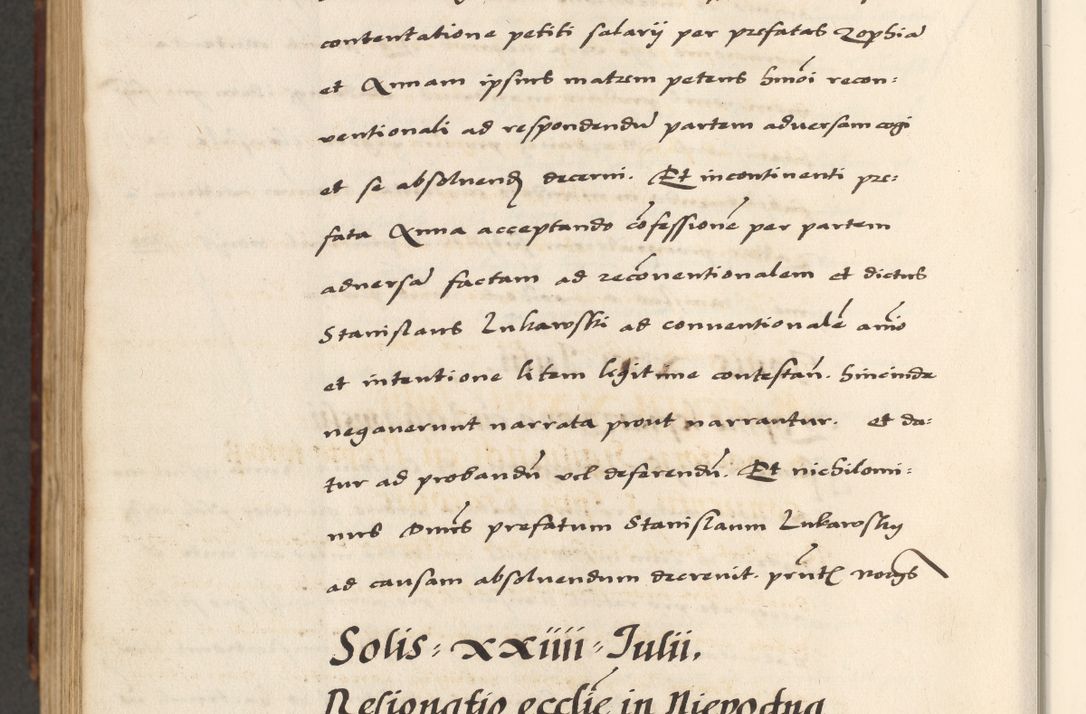 contentatione petiti salarij per prefatas Zophiā
et Annam ipsius matrem petens hmōi recon:
ventionali ad respondendū partem adversam cogi
et se absolvend decerni. Et incontinenti pre:
fata Anna acceptando cōfessionē per partem
adversā factam ad recōventionalem et dictus
Stanislaus Lukawsski ad conventionalē aīo
et intentione litem legitime contestan̄. hincinde
negaverunt narrata prout narrantur. et da:
tur ad probandū vel deferendū. Et nichilomi:
nus Dnūs prefatum Stanislaum Lukawsky
ad causam absolvendum decrevit. pn̄tē
Solis: XXIIII: Julii.
Resignatio ecclīe in Niepodna